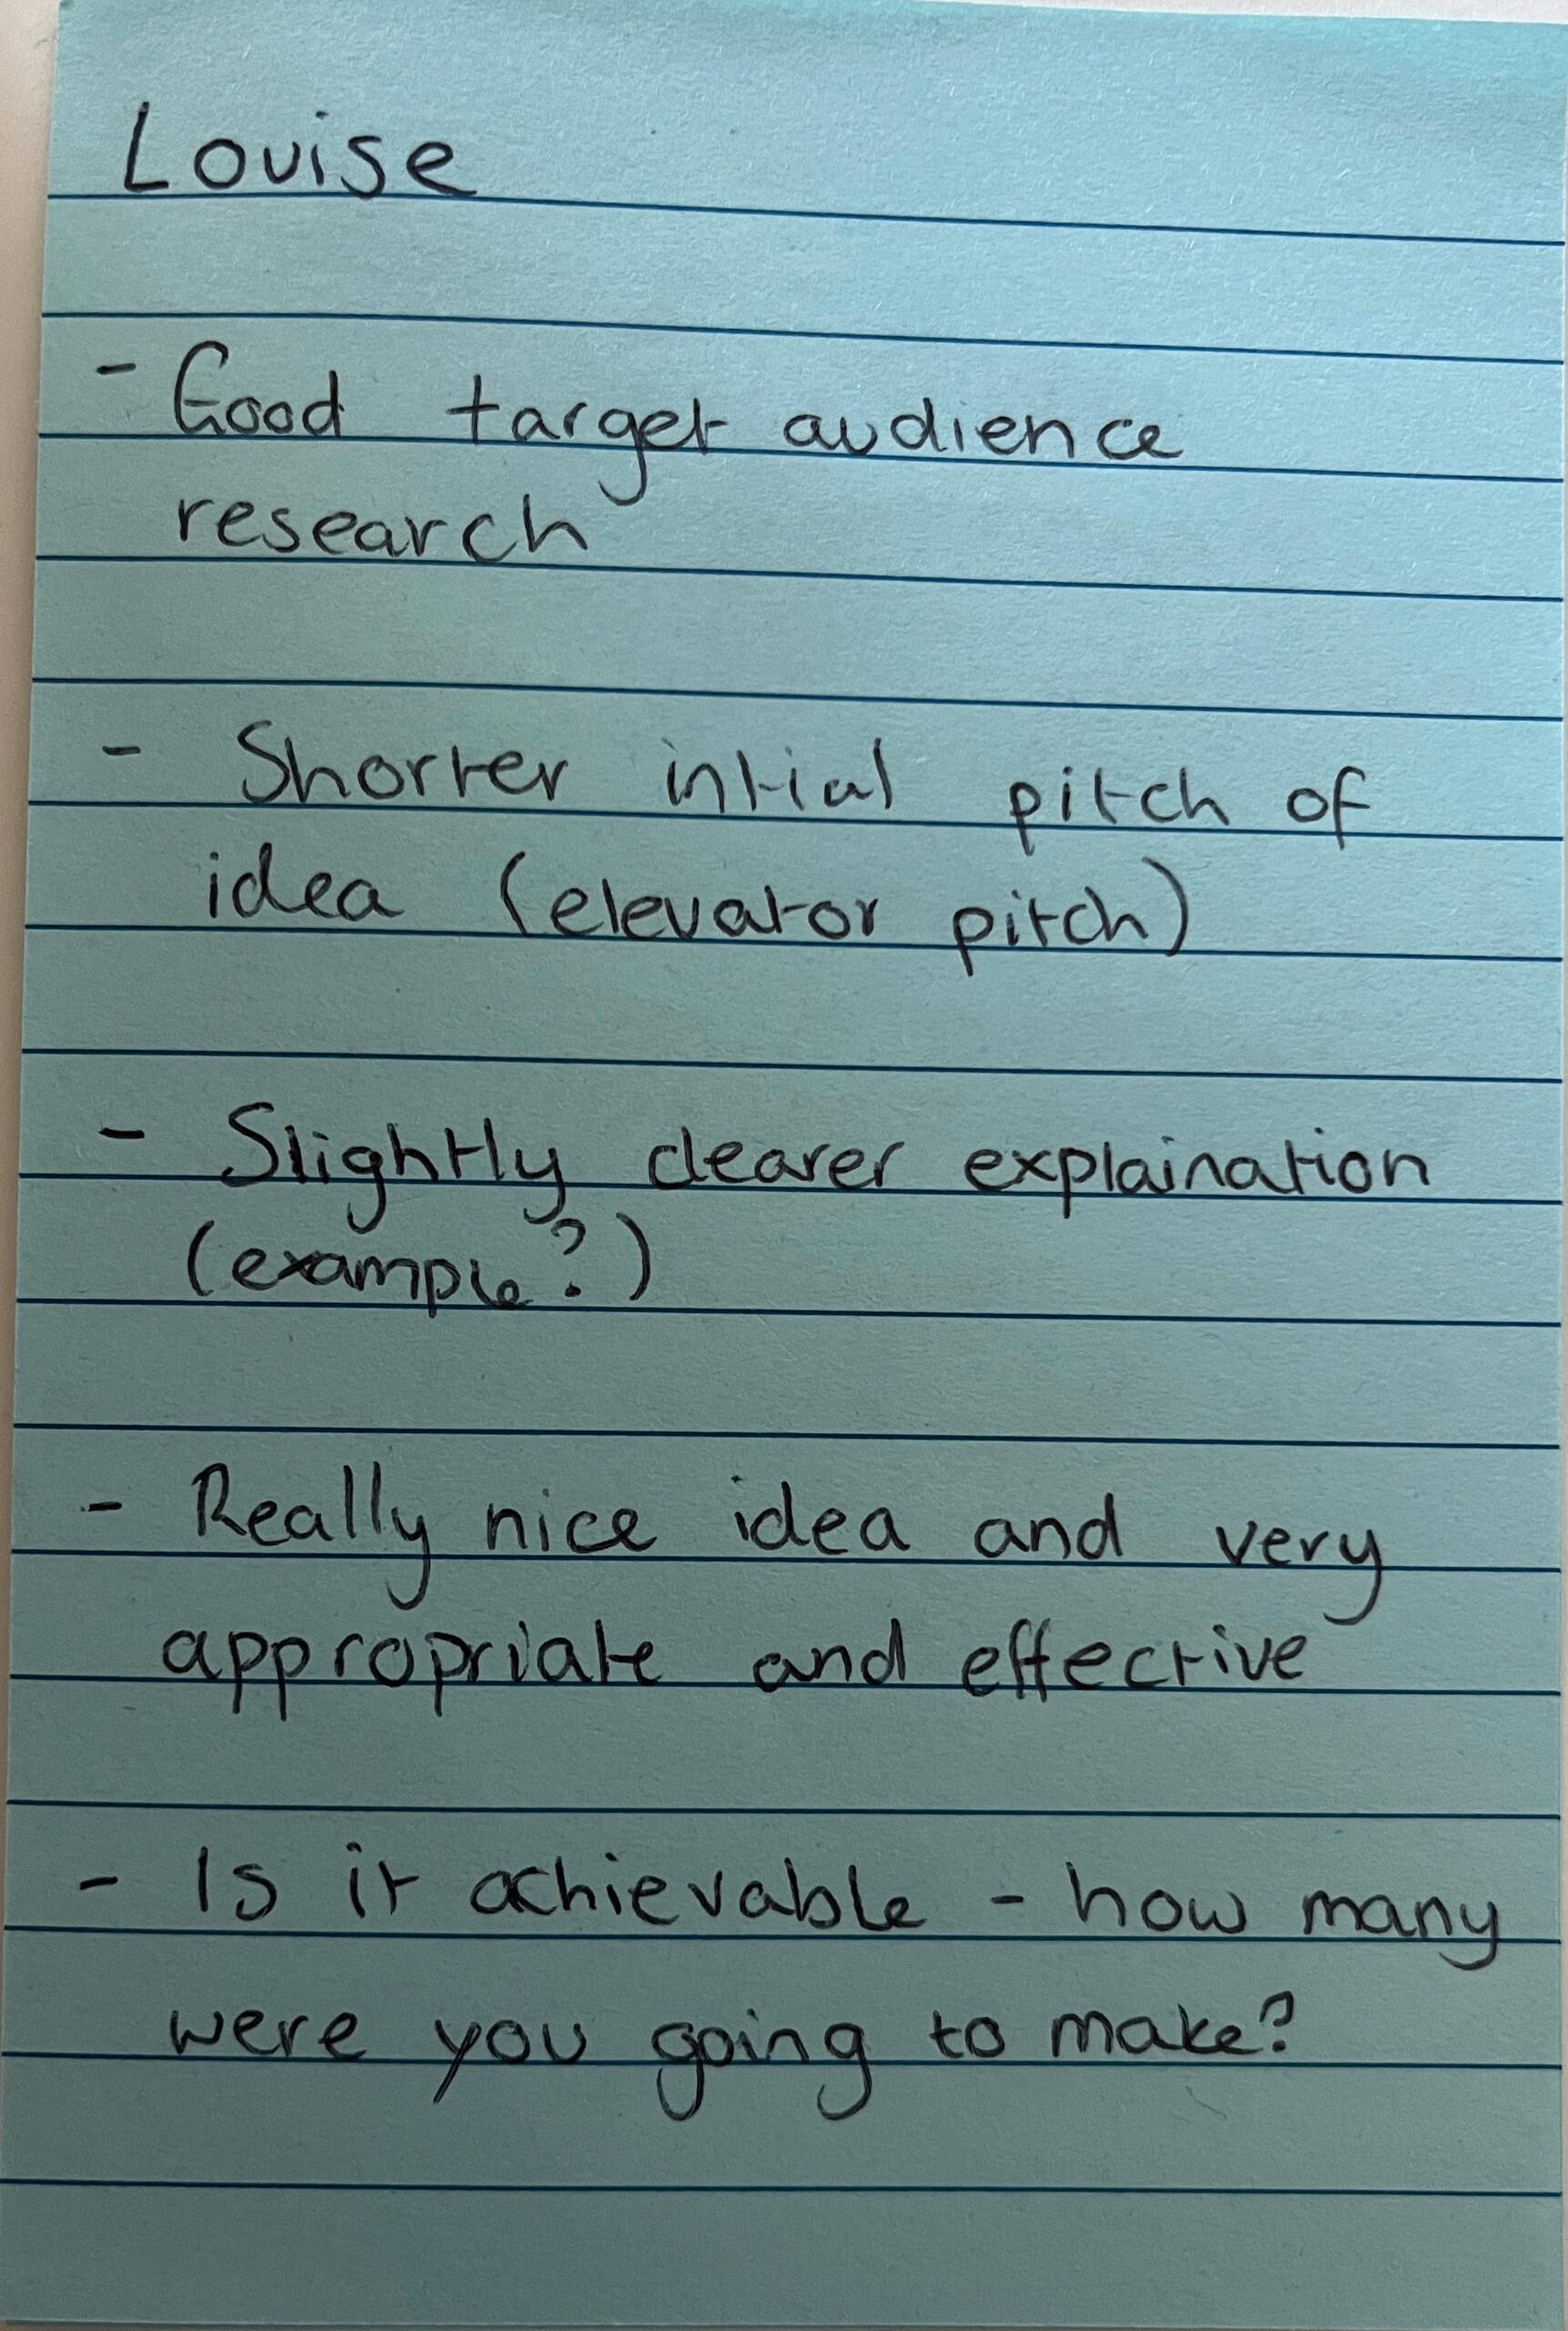 Louise
- Good target audience
research
- Shorter intial pitch of
idea (elevator pitch)
- Slightly clearer explaination
(example?)
- Really nice idea and very
appropriate and effective
- Is it achievable - how many
were you going to make?